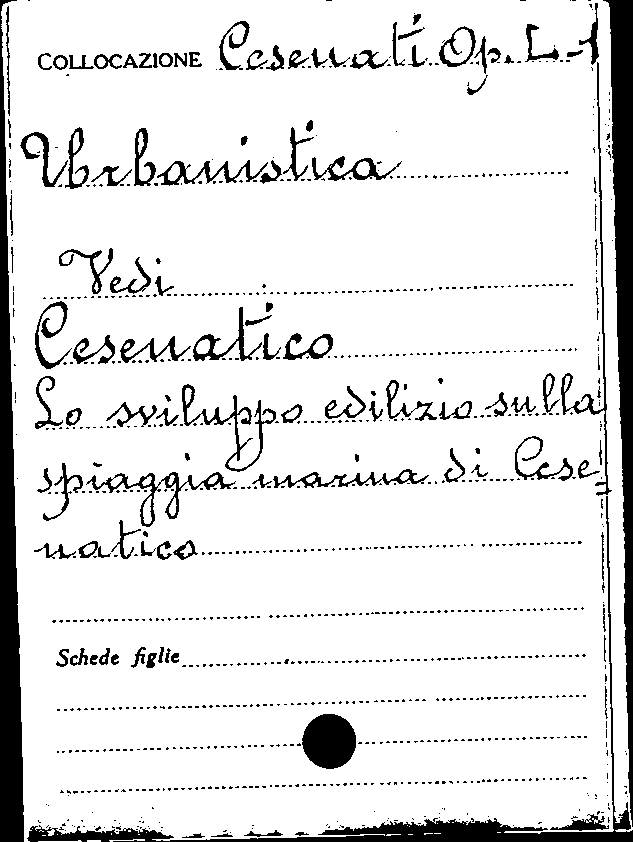 COLLOCAZIONE Cesenati Op. I-1
Urbanistica
Vedi
Cesenatico
Lo sviluppo edilizio sulla
spiaggia marina di Cese=
natico
Schede figlie